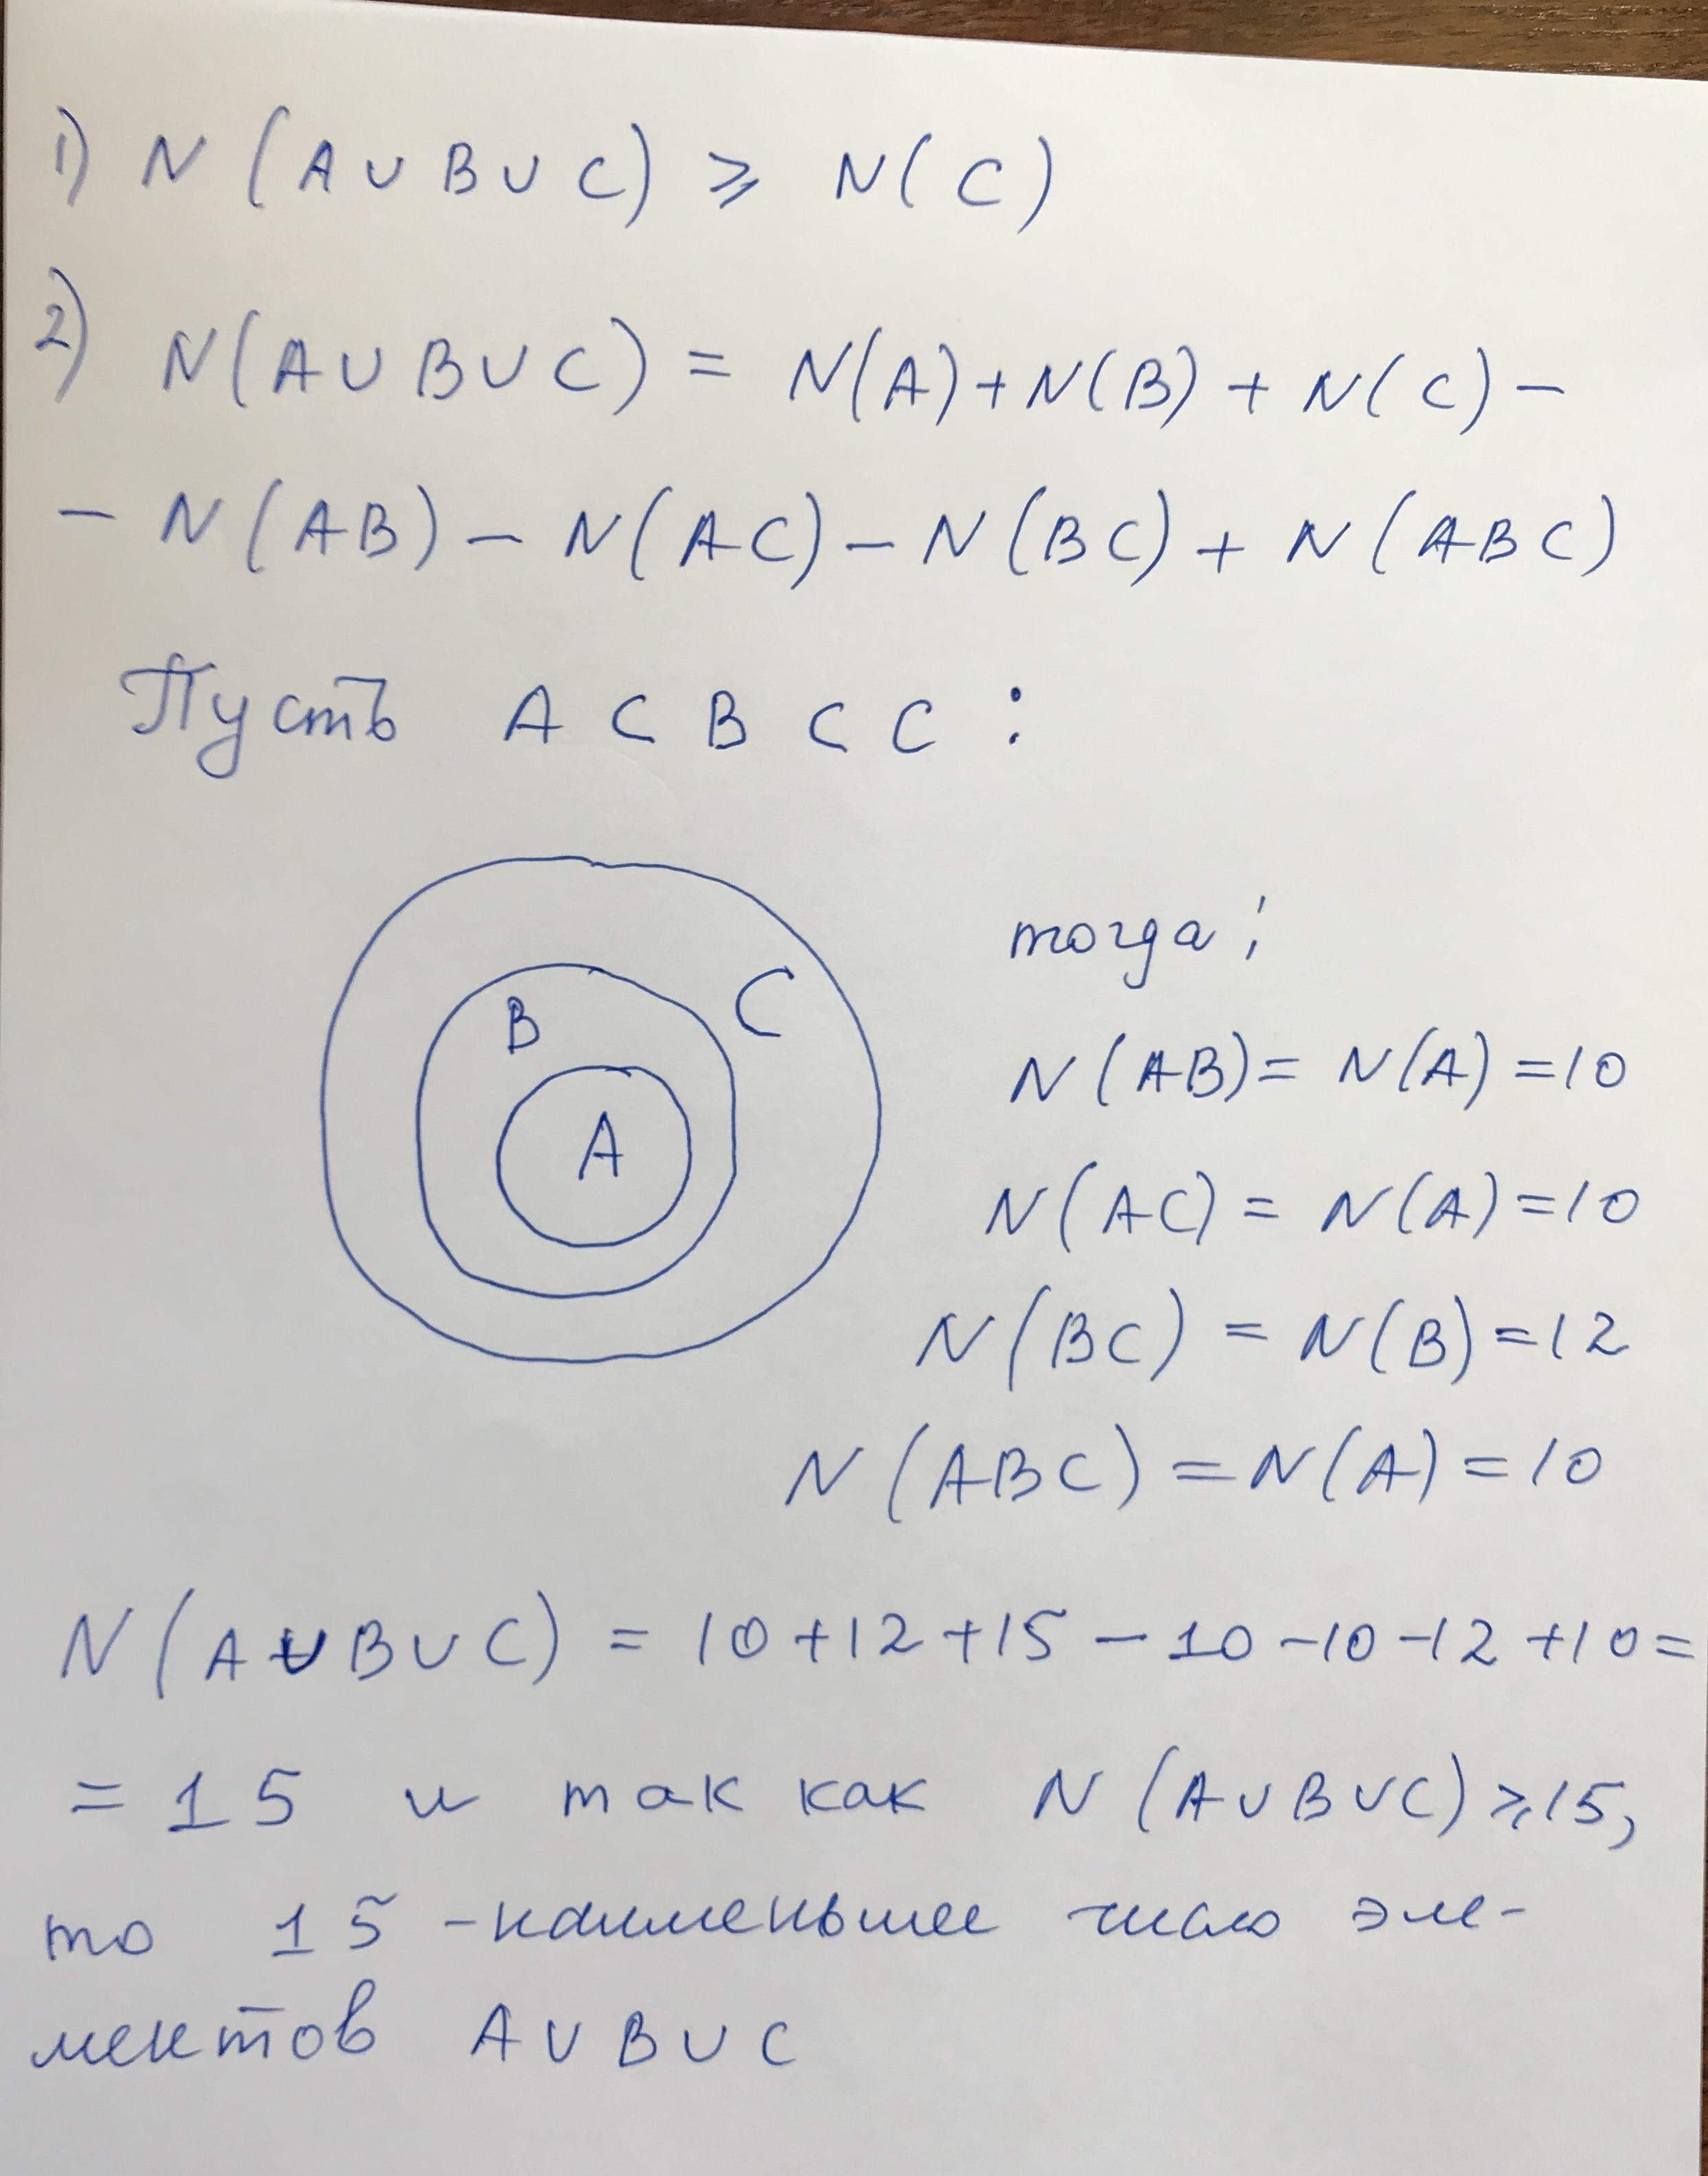 1) N (A ∪ B ∪ C) ⩾ N(C)
2) N(A ∪ B ∪ C) = N(A)+N(B) + N(C) -
- N(AB) - N(AC) - N(BC) + N(ABC)
Пусть A ⊂ B ⊂ C :
тогда:
B
C
A
N(AB)= N(A) =10
N(AC) = N(A) =10
N(BC) = N(B) =12
N(ABC) = N(A) = 10
N(A ∪ B ∪ C) = 10 +12 +15 - 10 -10 -12 +10 =
= 15 и так как N(A ∪ B ∪ C) ⩾ 15,
то 15 - наименьшее число эле-
ментов A ∪ B ∪ C